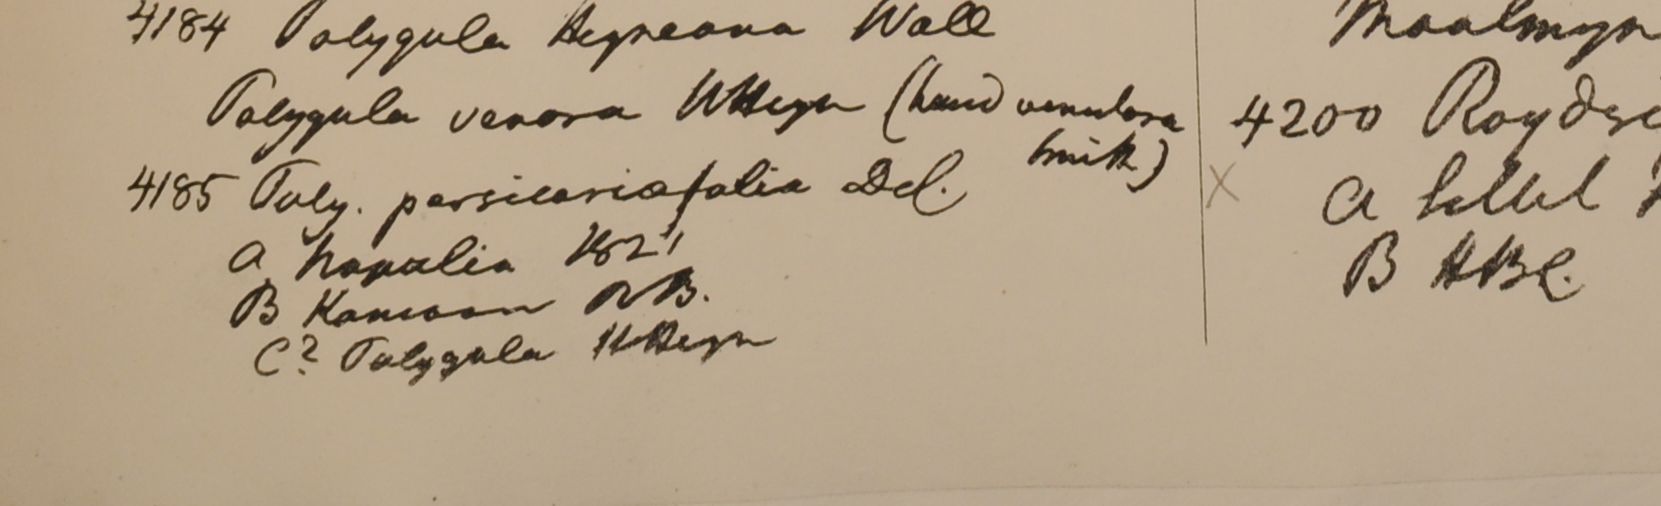 4184 Polygula Heyneana Wall
Polygula venosa HHeyn (haud venulosa
Smith)
4185 Poly. persicariæfolia Del.
a Napalia 1821
B Kamaon RB.
C? Polygula HHeyn
Moalmyn
4200 Roydse
X a Sillet
B HBC.